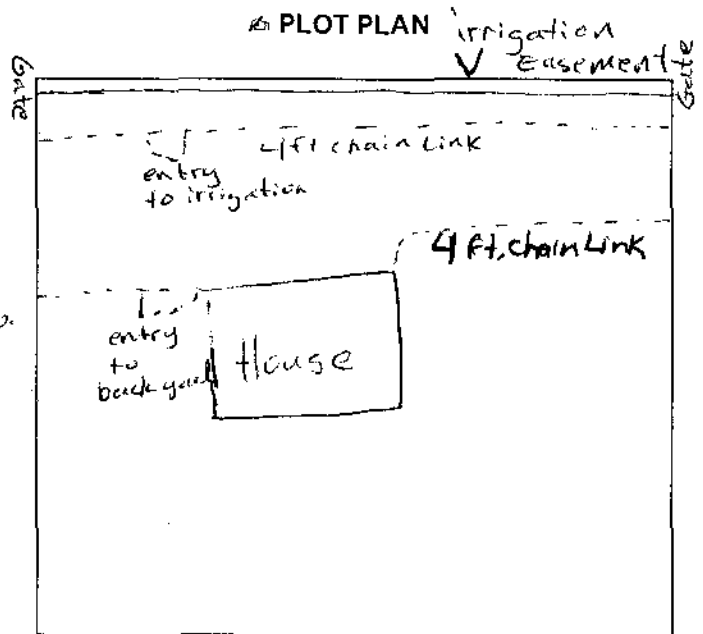 PLOT PLAN
irrigation
Easement
Gate
Gate
4ft chain Link
entry
to irrigation
4 ft. chain Link
entry
to
back yard
House